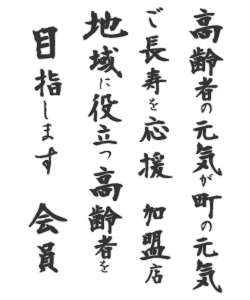 高齢者の元気が町の元気
ご長寿を応援 加盟店
地域に役立つ高齢者を
目指します 会員